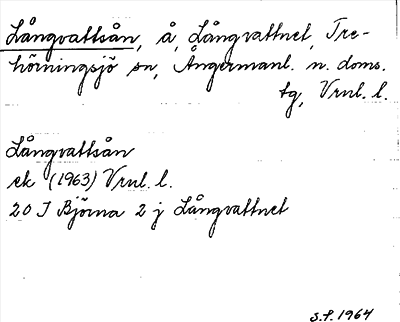 Långvattsån, å, Långvattnet, Tre-
hörningsjö sn, Ångermanl. n. doms.
tg, Vrnl. l.
Långvattsån
ek (1963) Vrnl. l.
20 I Björna 2 j Långvattnet
S.F. 1964